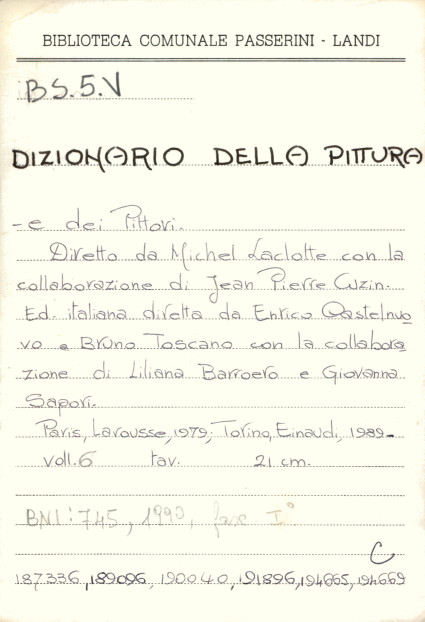 BIBLIOTECA COMUNALE PASSERINI - LANDI
BS.5.V
DIZIONARIO DELLA PITTURA
- e dei Pittori.
Diretto da Michel Laclotte con la
collaborazione di Jean Pierre Cuzin.
Ed. italiana diretta da Enrico Castelnuo
vo e Bruno Toscano con la collabora
zione di Liliana Barroero e Giovanna
Sapori.
Paris, Larousse, 1979; Torino, Einaudi, 1989-
voll. 6 tav. 21 cm.
BNI: 745, 1990, fasc I°
C
187336, 189096, 190040, 191896, 194665, 194669